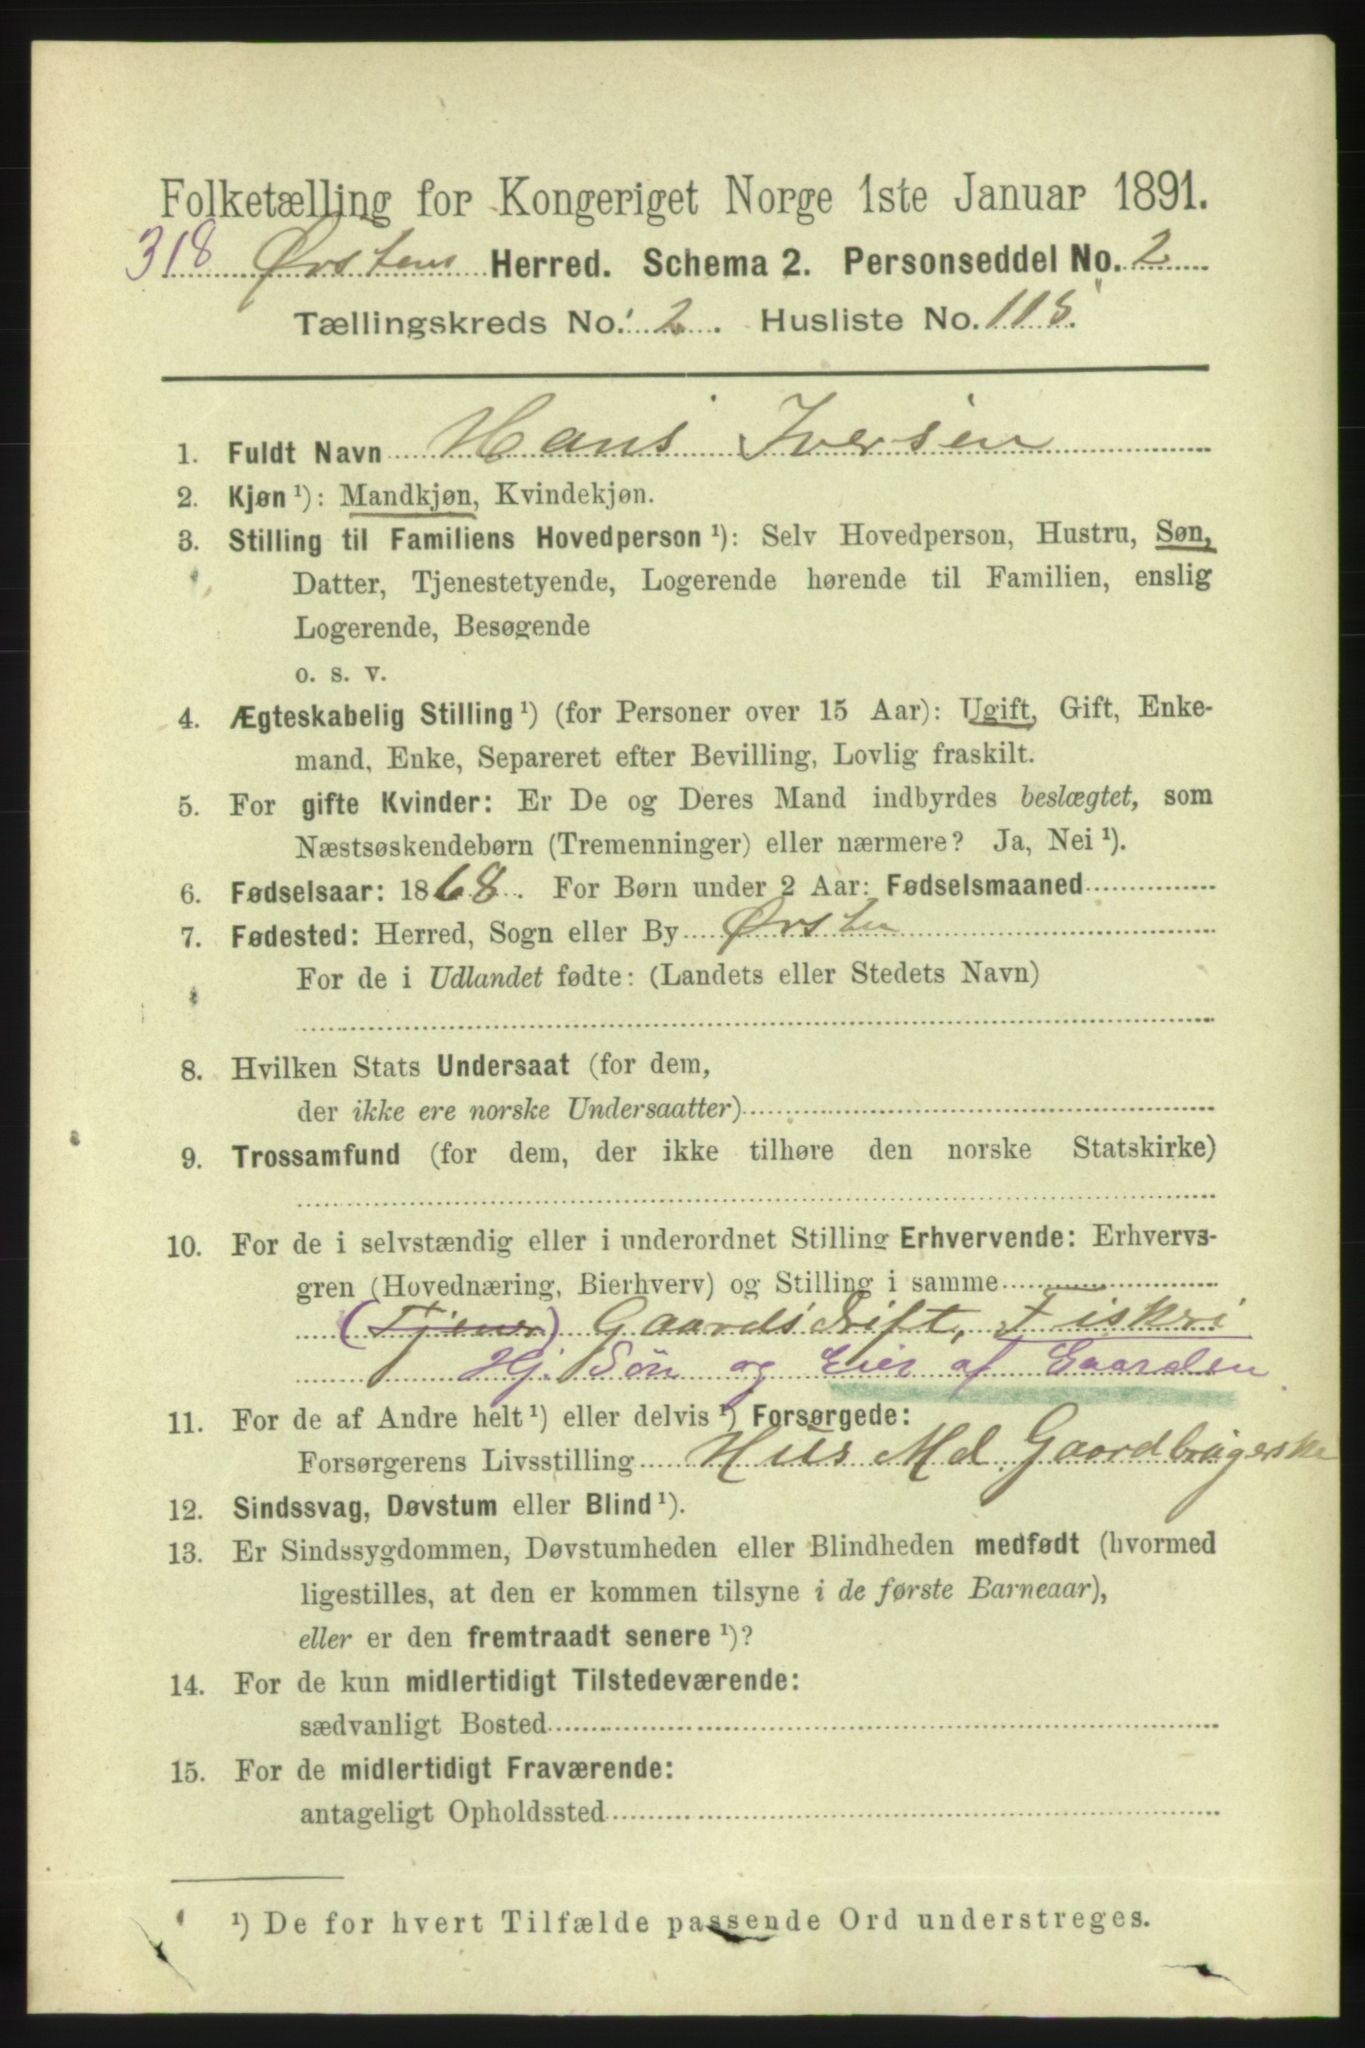 Folketælling for Kongeriget Norge 1ste Januar 1891.
318 Ørsten Herred. Schema 2. Personseddel No. 2
Tællingskreds No. 2. Husliste No. 115.
1. Fuldt Navn Hans Iversen
2. Kjøn ¹): Mandkjøn, Kvindekjøn.
3. Stilling til Familiens Hovedperson ¹): Selv Hovedperson, Hustru, Søn,
Datter, Tjenestetyende, Logerende hørende til Familien, enslig
Logerende, Besøgende
o. s. v.
4. Ægteskabelig Stilling ¹) (for Personer over 15 Aar): Ugift, Gift, Enke-
mand, Enke, Separeret efter Bevilling, Lovlig fraskilt.
5. For gifte Kvinder: Er De og Deres Mand indbyrdes beslægtet, som
Næstsøskendebørn (Tremenninger) eller nærmere? Ja, Nei ¹).
6. Fødselsaar: 1868. For Børn under 2 Aar: Fødselsmaaned
7. Fødested: Herred, Sogn eller By Ørsten
For de i Udlandet fødte: (Landets eller Stedets Navn)
8. Hvilken Stats Undersaat (for dem,
der ikke ere norske Undersaatter)
9. Trossamfund (for dem, der ikke tilhøre den norske Statskirke)
10. For de i selvstændig eller i underordnet Stilling Erhvervende: Erhvervs-
gren (Hovednæring, Bierhverv) og Stilling i samme
(Tjener) Gaardsdrift, Fiskri
Hj. Søn og Eier af Gaarden
11. For de af Andre helt ¹) eller delvis ¹) Forsørgede:
Forsørgerens Livsstilling Huus Md Gaardbrugerske
12. Sindssvag, Døvstum eller Blind ¹).
13. Er Sindssygdommen, Døvstumheden eller Blindheden medfødt (hvormed
ligestilles, at den er kommen tilsyne i de første Barneaar),
eller er den fremtraadt senere ¹)?
14. For de kun midlertidigt Tilstedeværende:
sædvanligt Bosted
15. For de midlertidigt Fraværende:
antageligt Opholdssted
¹) De for hvert Tilfælde passende Ord understreges.